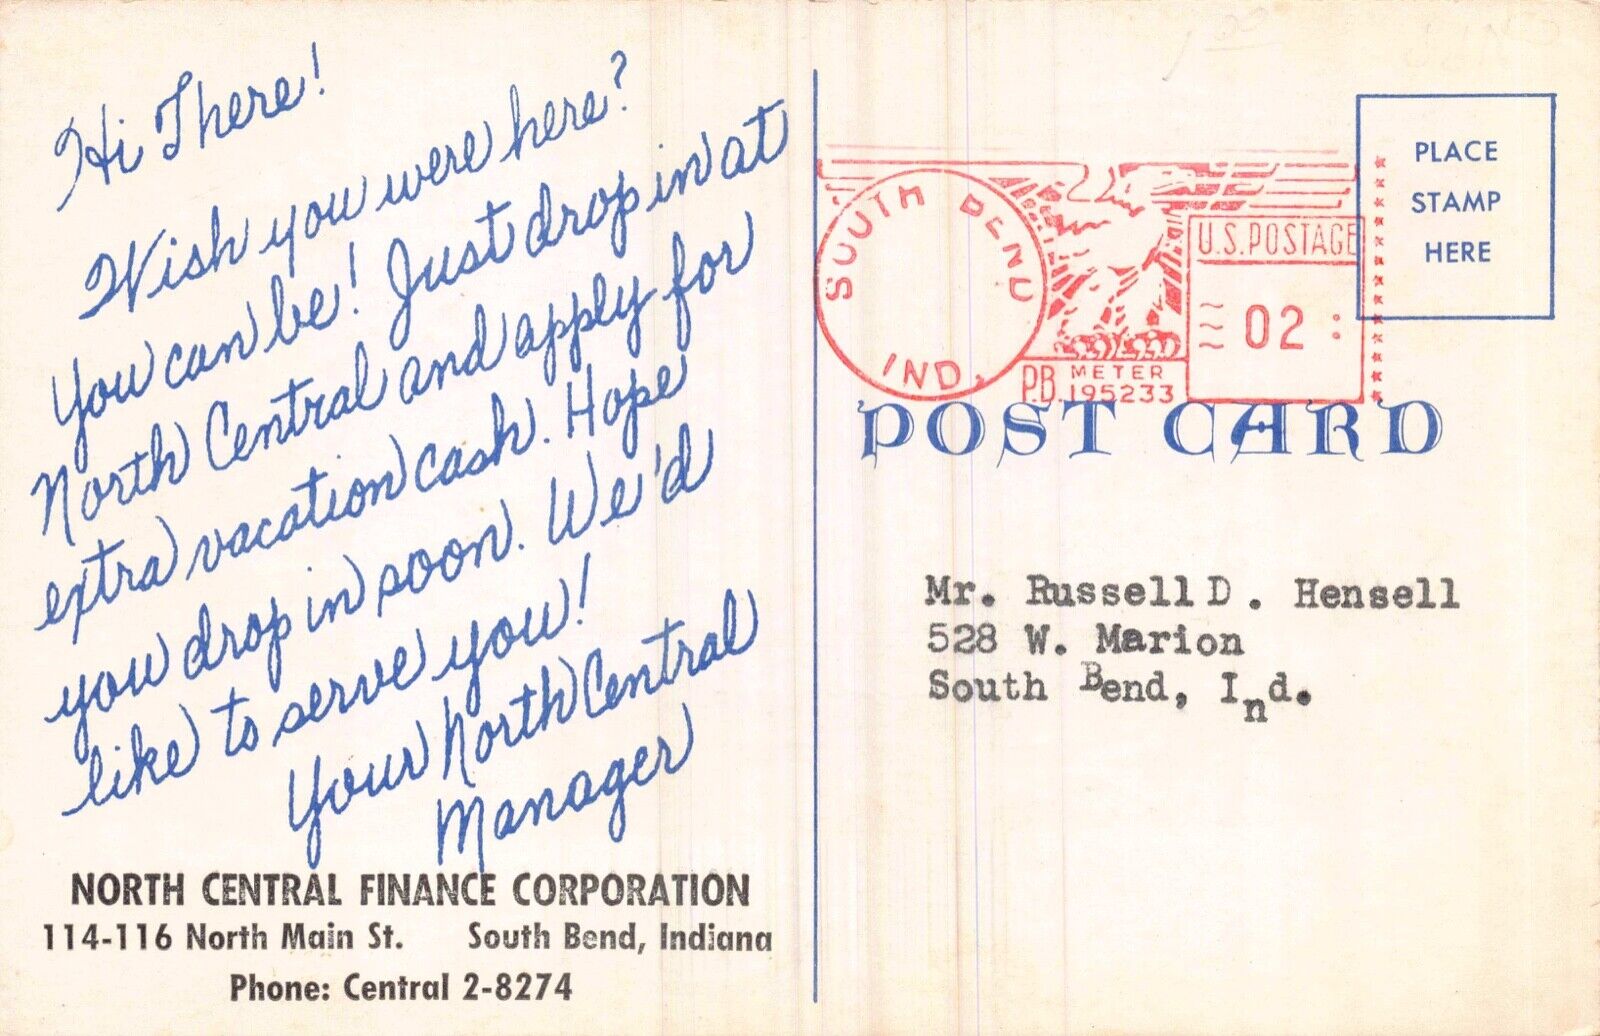 Hi There!
Wish you were here?
You can be! Just drop in at
North Central and apply for
extra vacation cash. Hope
you drop in soon. We'd
like to serve you!
Your North Central
Manager
NORTH CENTRAL FINANCE CORPORATION
114-116 North Main St. South Bend, Indiana
Phone: Central 2-8274
SOUTH BEND
IND.
U.S. POSTAGE
02
P.B. METER
195233
PLACE
STAMP
HERE
POST CARD
Mr. Russell D. Hensell
528 W. Marion
South Bend, Ind.